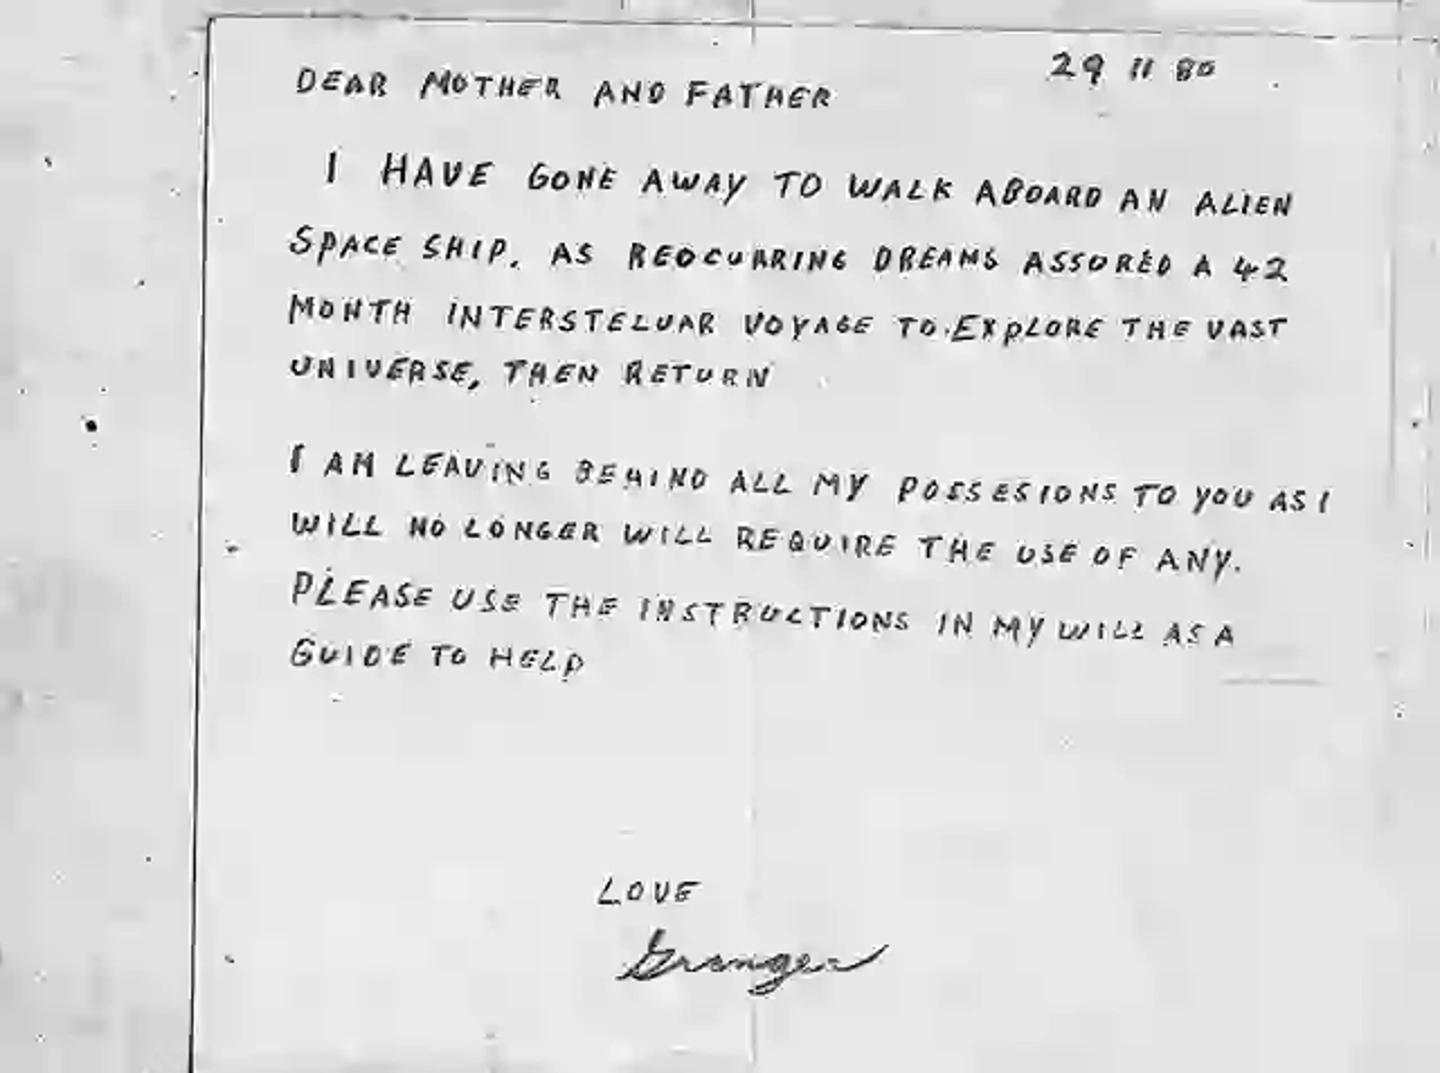 29 11 80
DEAR MOTHER AND FATHER
I HAVE GONE AWAY TO WALK ABOARD AN ALIEN
SPACE SHIP. AS REOCURRING DREAMS ASSURED A 42
MONTH INTERSTELUAR VOYAGE TO EXPLORE THE VAST
UNIVERSE, THEN RETURN
I AM LEAVING BEHIND ALL MY POSSESIONS TO YOU AS I
WILL NO LONGER WILL REQUIRE THE USE OF ANY.
PLEASE USE THE INSTRUCTIONS IN MY WILL AS A
GUIDE TO HELP
LOVE
Granger